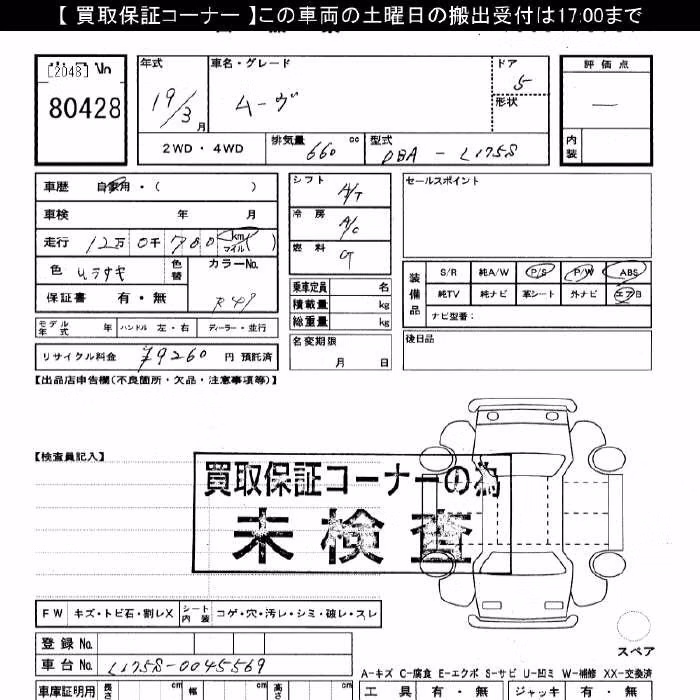 【 買取保証コーナー 】この車両の土曜日の搬出受付は17:00まで
[2048] No
80428
年式
19/3 月
車名・グレード
ムーヴ
ドア
5
形状
評価点
—
内装
2WD・4WD
排気量 660 cc
型式 DBA - L175S
車歴 自家用・( )
車検 年 月
走行 12万 0千 780 (km マイル)
色 ムラサキ
色替
カラーNo.
R49
保証書 有・無
モデル年式 年 ハンドル 左・右 ディーラー・並行
リサイクル料金 ¥9260 円 預託済
シフト A/T
冷房 A/C
燃料 G
乗車定員 名
積載量 kg
総重量 kg
名変期限
月 日
セールスポイント
装備品
S/R 純A/W P/S P/W ABS
純TV 純ナビ 革シート 外ナビ エアB
ナビ型番:
後日品
【出品店申告欄(不良箇所・欠品・注意事項等)】
【検査員記入】
買取保証コーナーの為
未検査
FW キズ・トビ石・割レX シート内装 コゲ・穴・汚レ・シミ・破レ・スレ
スペア
登録 No.
車台 No. L175S-0045569
A-キズ C-腐食 E-エクボ S-サビ U-凹ミ W-補修 XX-交換済
車庫証明用 長さ cm 幅 cm 高さ cm
工具 有・無 ジャッキ 有・無